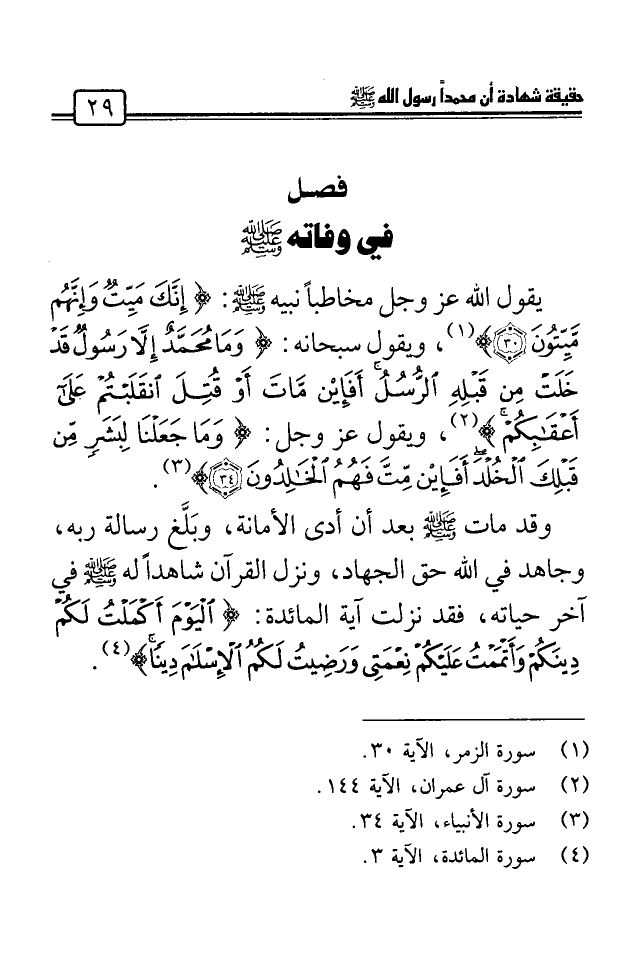 حقيقة شهادة أن محمداً رسول الله ﷺ
٢٩
فصل
في وفاته ﷺ
يقول الله عز وجل مخاطباً نبيه ﷺ: ﴿ إِنَّكَ مَيِّتٌ وَإِنَّهُم
مَّيِّتُونَ ٣٠﴾(١)، ويقول سبحانه: ﴿ وَمَا مُحَمَّدٌ إِلَّا رَسُولٌ قَدْ
خَلَتْ مِن قَبْلِهِ الرُّسُلُ ۚ أَفَإِيْن مَّاتَ أَوْ قُتِلَ انقَلَبْتُمْ عَلَىٰٓ
أَعْقَٰبِكُمْ ۚ﴾(٢)، ويقول عز وجل: ﴿ وَمَا جَعَلْنَا لِبَشَرٍ مِّن
قَبْلِكَ الْخُلْدَ ۖ أَفَإِيْن مِّتَّ فَهُمُ الْخَٰلِدُونَ ٣٤﴾(٣).
وقد مات ﷺ بعد أن أدى الأمانة، وبَلَّغ رسالة ربه،
وجاهد في الله حق الجهاد، ونزل القرآن شاهداً له ﷺ في
آخر حياته، فقد نزلت آية المائدة: ﴿ الْيَوْمَ أَكْمَلْتُ لَكُمْ
دِينَكُمْ وَأَتْمَمْتُ عَلَيْكُمْ نِعْمَتِي وَرَضِيتُ لَكُمُ الْإِسْلَٰمَ دِينًا ۚ﴾(٤).
(١) سورة الزمر، الآية ٣٠.
(٢) سورة آل عمران، الآية ١٤٤.
(٣) سورة الأنبياء، الآية ٣٤.
(٤) سورة المائدة، الآية ٣.